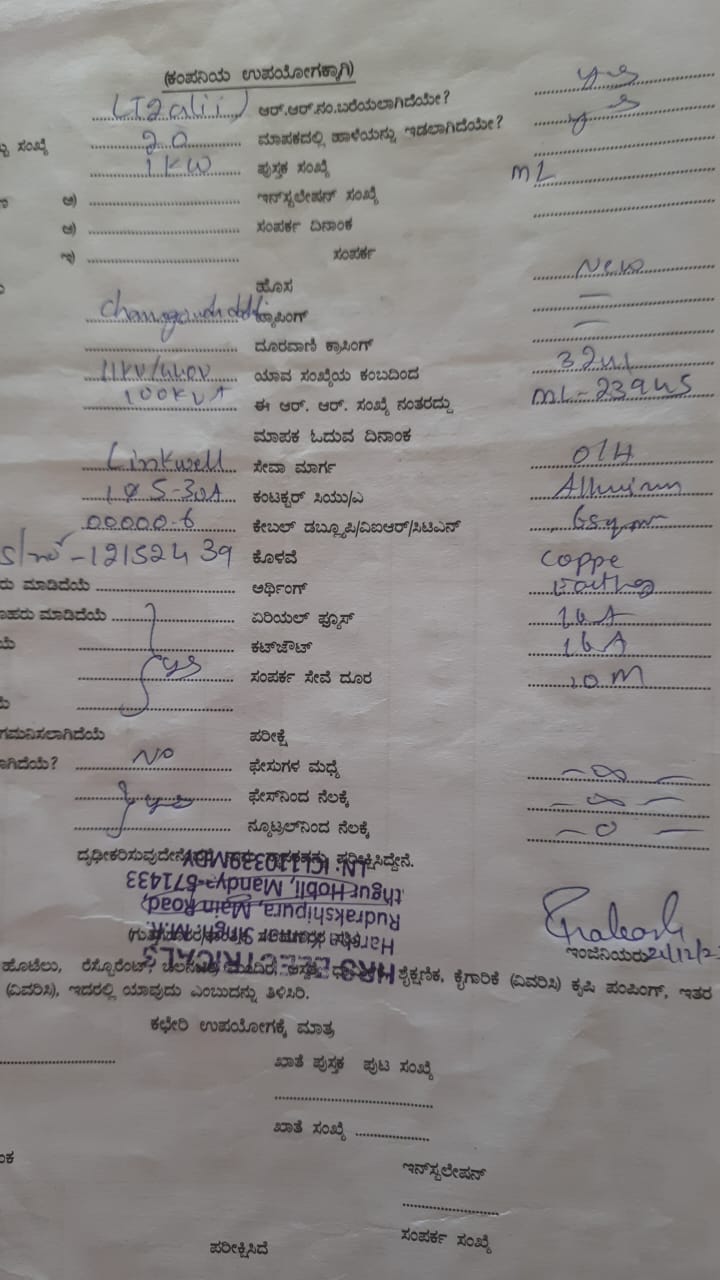 (ಕಂಪನಿಯ ಉಪಯೋಗಕ್ಕಾಗಿ)
ಆರ್.ಆರ್.ನಂ.ಬರೆಯಲಾಗಿದೆಯೇ? yes
ಸಂಖ್ಯೆ 20 ಮಾಪಕದಲ್ಲಿ ಹಾಳೆಯನ್ನು ಇಡಲಾಗಿದೆಯೇ? yes
1 KW ಪುಸ್ತಕ ಸಂಖ್ಯೆ
ಅ) ಇನ್‌ಸ್ಟಲೇಷನ್ ಸಂಖ್ಯೆ ML
ಆ) ಸಂಪರ್ಕ ದಿನಾಂಕ
ಇ) ಸಂಪರ್ಕ
ಹೊಸ New
ಟ್ಯಾಪಿಂಗ್ —
ದೂರವಾಣಿ ಕ್ರಾಸಿಂಗ್ —
11KV/440V ಯಾವ ಸಂಖ್ಯೆಯ ಕಂಬದಿಂದ
100KVA ಈ ಆರ್. ಆರ್. ಸಂಖ್ಯೆ ನಂತರದ್ದು ML-23945
ಮಾಪಕ ಓದುವ ದಿನಾಂಕ
Linkwell ಸೇವಾ ಮಾರ್ಗ O/H
5-30A ಕಂಟಕ್ಟರ್ ಸಿಯು/ಎ
00000.6 ಕೇಬಲ್ ಡಬ್ಲ್ಯೂಪಿ/ವಿಐಆರ್/ಸಿಟಿಎನ್ 6sqmm
S/no -12152439 ಕೊಳವೆ Coppe
ಮಾಡಿದೆಯೆ ಅರ್ಥಿಂಗ್ Earthg
ಮಾಡಿದೆಯೆ ಏರಿಯಲ್ ಫ್ಯೂಸ್ 16A
ಕಟ್‌ಜೌಟ್ 16A
yes ಸಂಪರ್ಕ ಸೇವೆ ದೂರ 10M
ಗಮನಿಸಲಾಗಿದೆಯೆ ಪರೀಕ್ಷೆ
No ಫೇಸುಗಳ ಮಧ್ಯೆ — ∞ —
yes ಫೇಸ್‌ನಿಂದ ನೆಲಕ್ಕೆ — ∞ —
ನ್ಯೂಟ್ರಲ್‌ನಿಂದ ನೆಲಕ್ಕೆ — 0 —
ಪರೀಕ್ಷಿಸಿದ್ದೇನೆ.
HRS ELECTRICALS
Rudrakshipura, Main Road,
Hobli, Mandya-571433
ಇಂಜಿನಿಯರು
ಹೊಟೆಲು, ರೆಸ್ಟೋರೆಂಟ್, ಶೈಕ್ಷಣಿಕ, ಕೈಗಾರಿಕೆ (ವಿವರಿಸಿ) ಕೃಷಿ ಪಂಪಿಂಗ್, ಇತರ
(ವಿವರಿಸಿ), ಇದರಲ್ಲಿ ಯಾವುದು ಎಂಬುದನ್ನು ತಿಳಿಸಿರಿ.
ಕಛೇರಿ ಉಪಯೋಗಕ್ಕೆ ಮಾತ್ರ
ಖಾತೆ ಪುಸ್ತಕ ಪುಟ ಸಂಖ್ಯೆ
ಖಾತೆ ಸಂಖ್ಯೆ
ಇನ್‌ಸ್ಟಲೇಷನ್
ಸಂಪರ್ಕ ಸಂಖ್ಯೆ
ಪರೀಕ್ಷಿಸಿದೆ